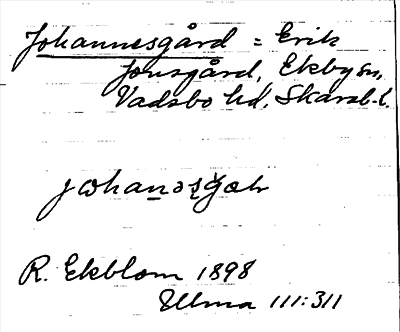 Johannesgård = Erik
Jonsgård, Ekby sn,
Vadsbo hd, Skarab.l.
R. Ekblom 1898
Ulma 111:311